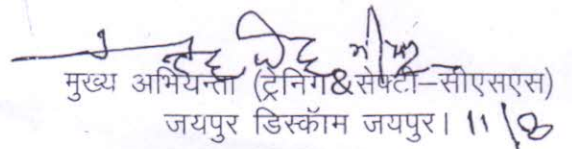 मुख्य अभियन्ता (ट्रेनिंग&सेफ्टी–सीएसएस)
जयपुर डिस्कॉम जयपुर। 11/8